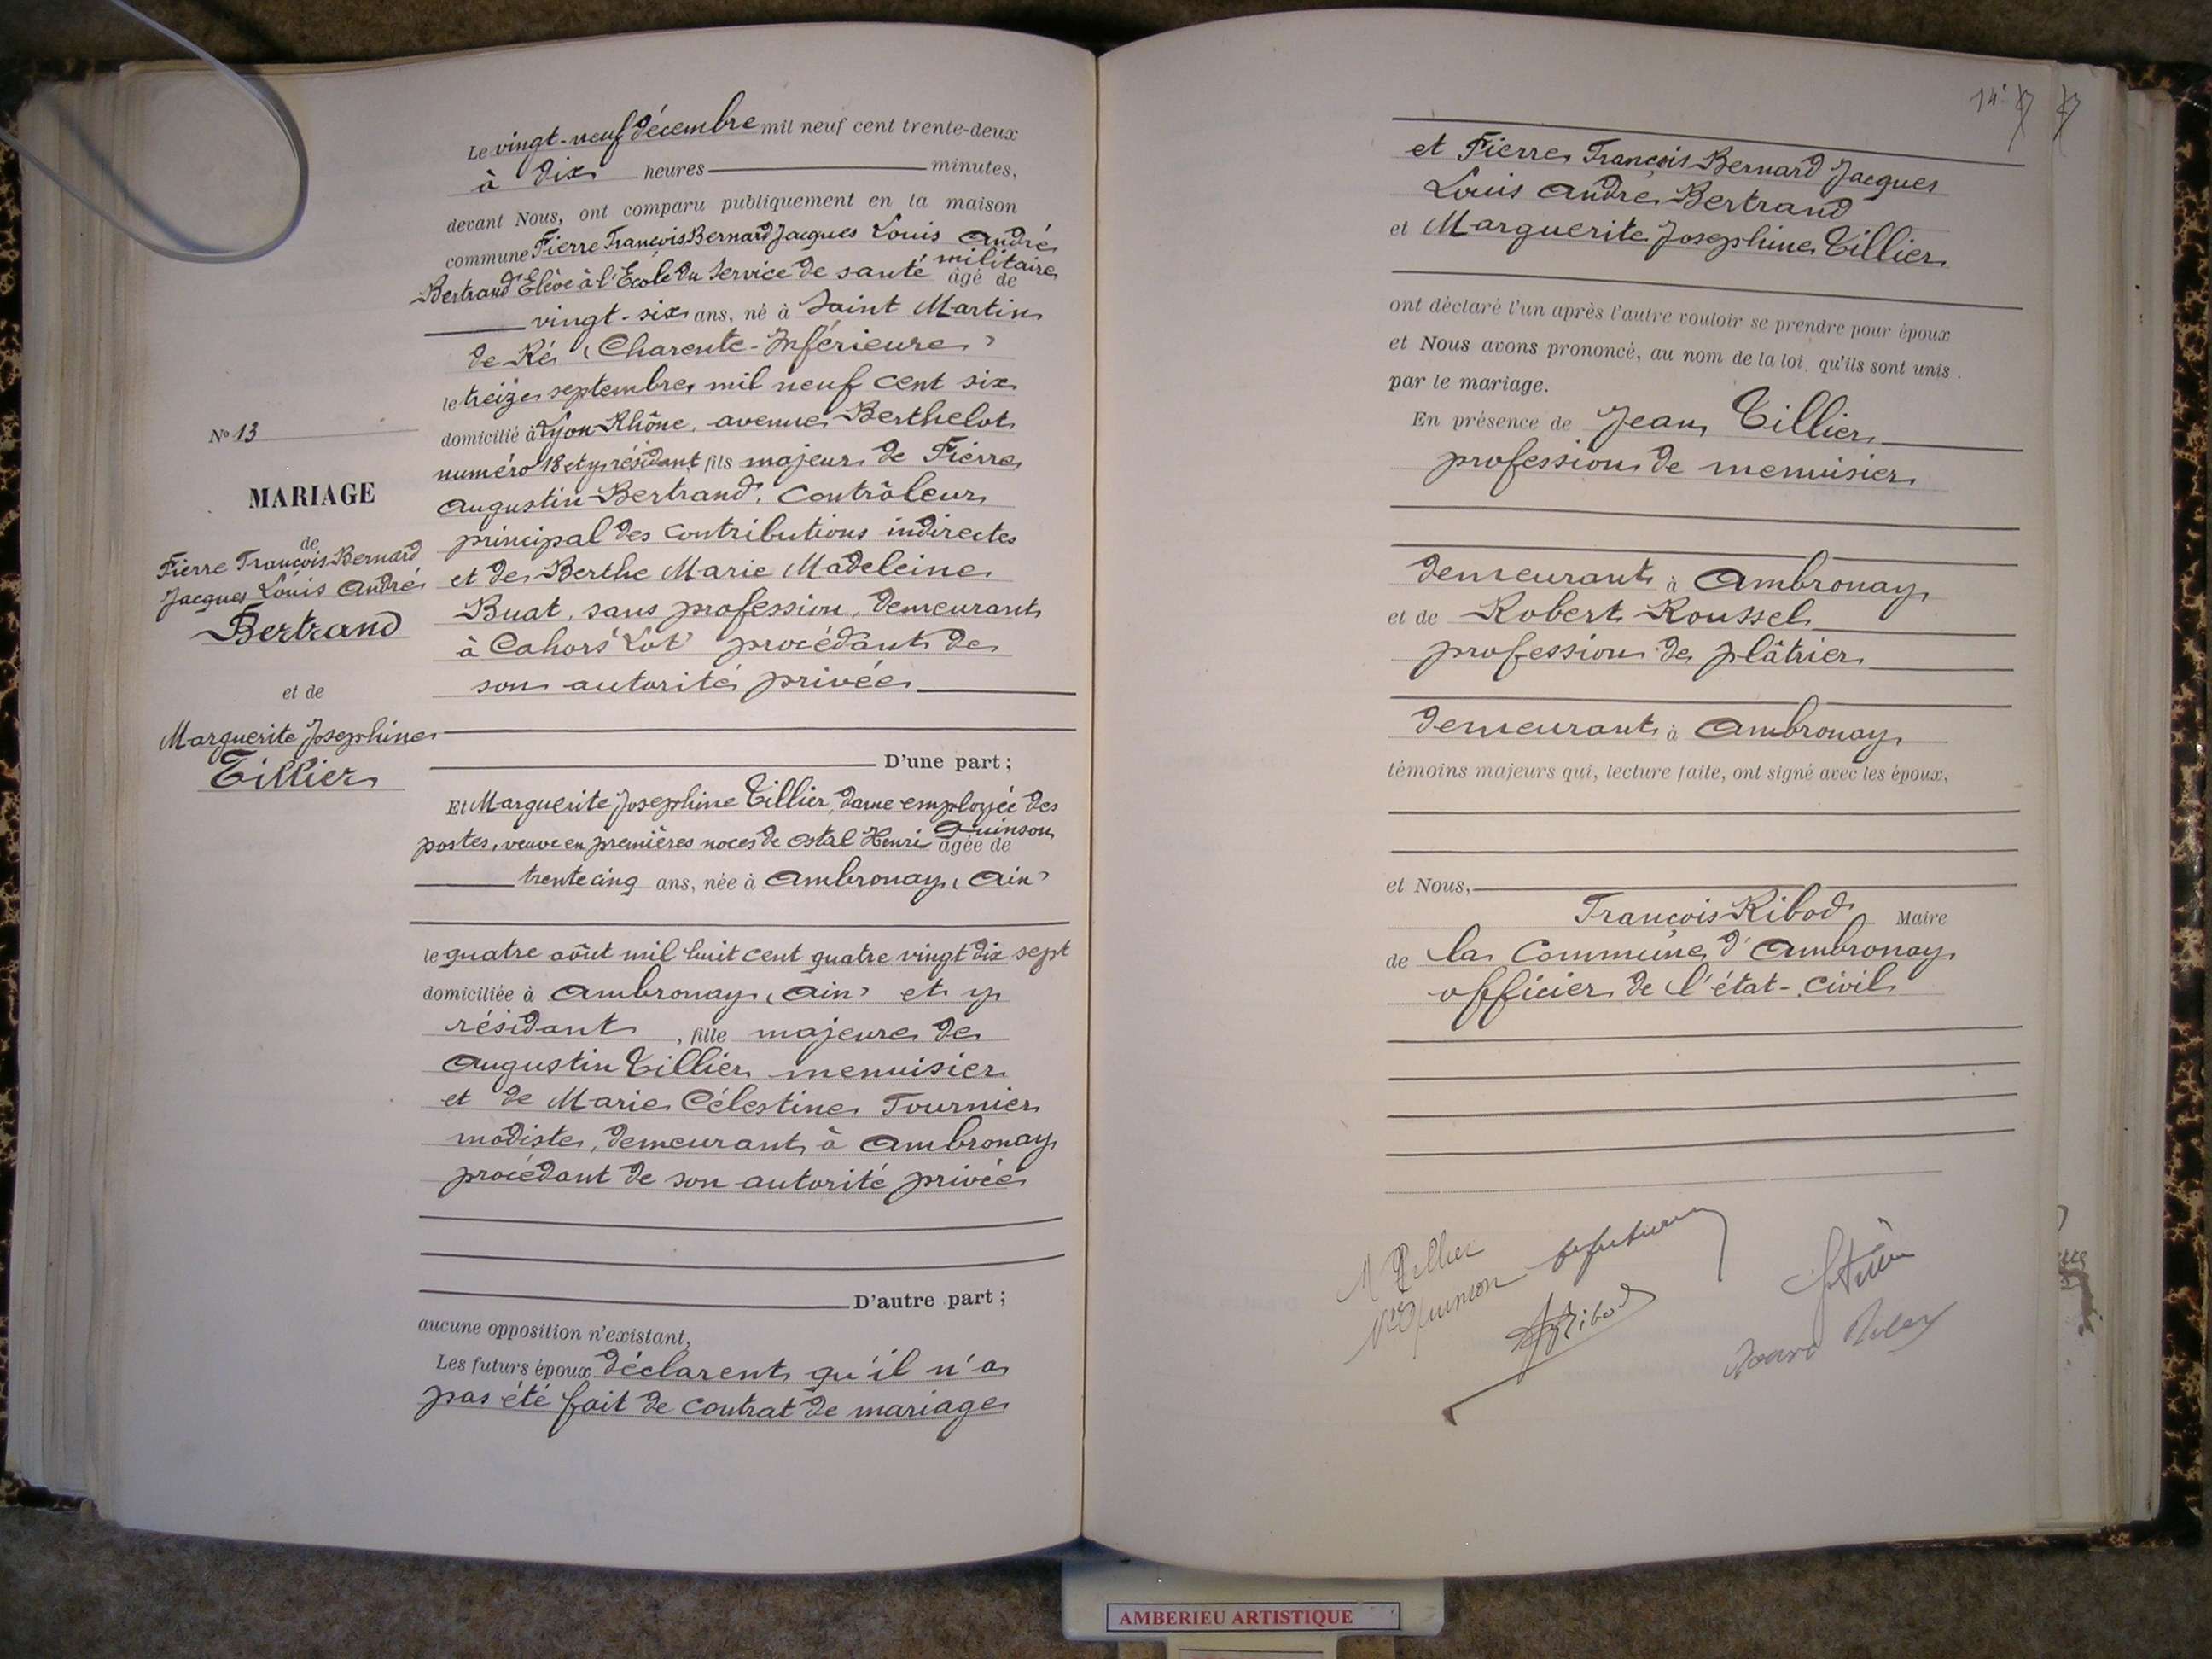 Le vingt-neuf décembre mil neuf cent trente-deux
à dix heures minutes,
devant Nous, ont comparu publiquement en la maison
commune Pierre François Bernard Jacques Louis André
Bertrand Élève à l'École du Service de santé militaire âgé de
vingt-six ans, né à Saint Martin
de Ré (Charente-Inférieure)
le treize septembre mil neuf cent six
domicilié à Lyon Rhône, avenue Berthelot
numéro 18 et y résidant fils majeur de Pierre
Augustin Bertrand, Contrôleur
principal des contributions indirectes
et de Berthe Marie Madeleine
Buat, sans profession, demeurant
à Cahors (Lot) procédant de
son autorité privée
D'une part ;
Et Marguerite Josephine Tillier, dame employée des
postes, veuve en premières noces de Henri Quinson âgée de
trente cinq ans, née à Ambronay (Ain)
le quatre août mil huit cent quatre vingt dix sept
domiciliée à Ambronay (Ain) et y
résidant, fille majeure de
Augustin Tillier menuisier
et de Marie Célestine Tournier
modiste, demeurant à Ambronay
procédant de son autorité privée
D'autre part ;
aucune opposition n'existant,
Les futurs époux déclarent qu'il n'a
pas été fait de contrat de mariage
No 13
MARIAGE
de
Pierre François Bernard
Jacques Louis André
Bertrand
et de
Marguerite Josephine
Tillier
et Pierre François Bernard Jacques
Louis André Bertrand
et Marguerite Josephine Tillier
ont déclaré l'un après l'autre vouloir se prendre pour époux
et Nous avons prononcé, au nom de la loi, qu'ils sont unis
par le mariage.
En présence de Jean Tillier
profession de menuisier
demeurant à Ambronay
et de Robert Roussel
profession de plâtrier
demeurant à Ambronay
témoins majeurs qui, lecture faite, ont signé avec les époux,
et Nous,
François Ribod Maire
de la Commune d'Ambronay
officier de l'état-civil
M Tillier
Quinson
Ribod
AMBERIEU ARTISTIQUE